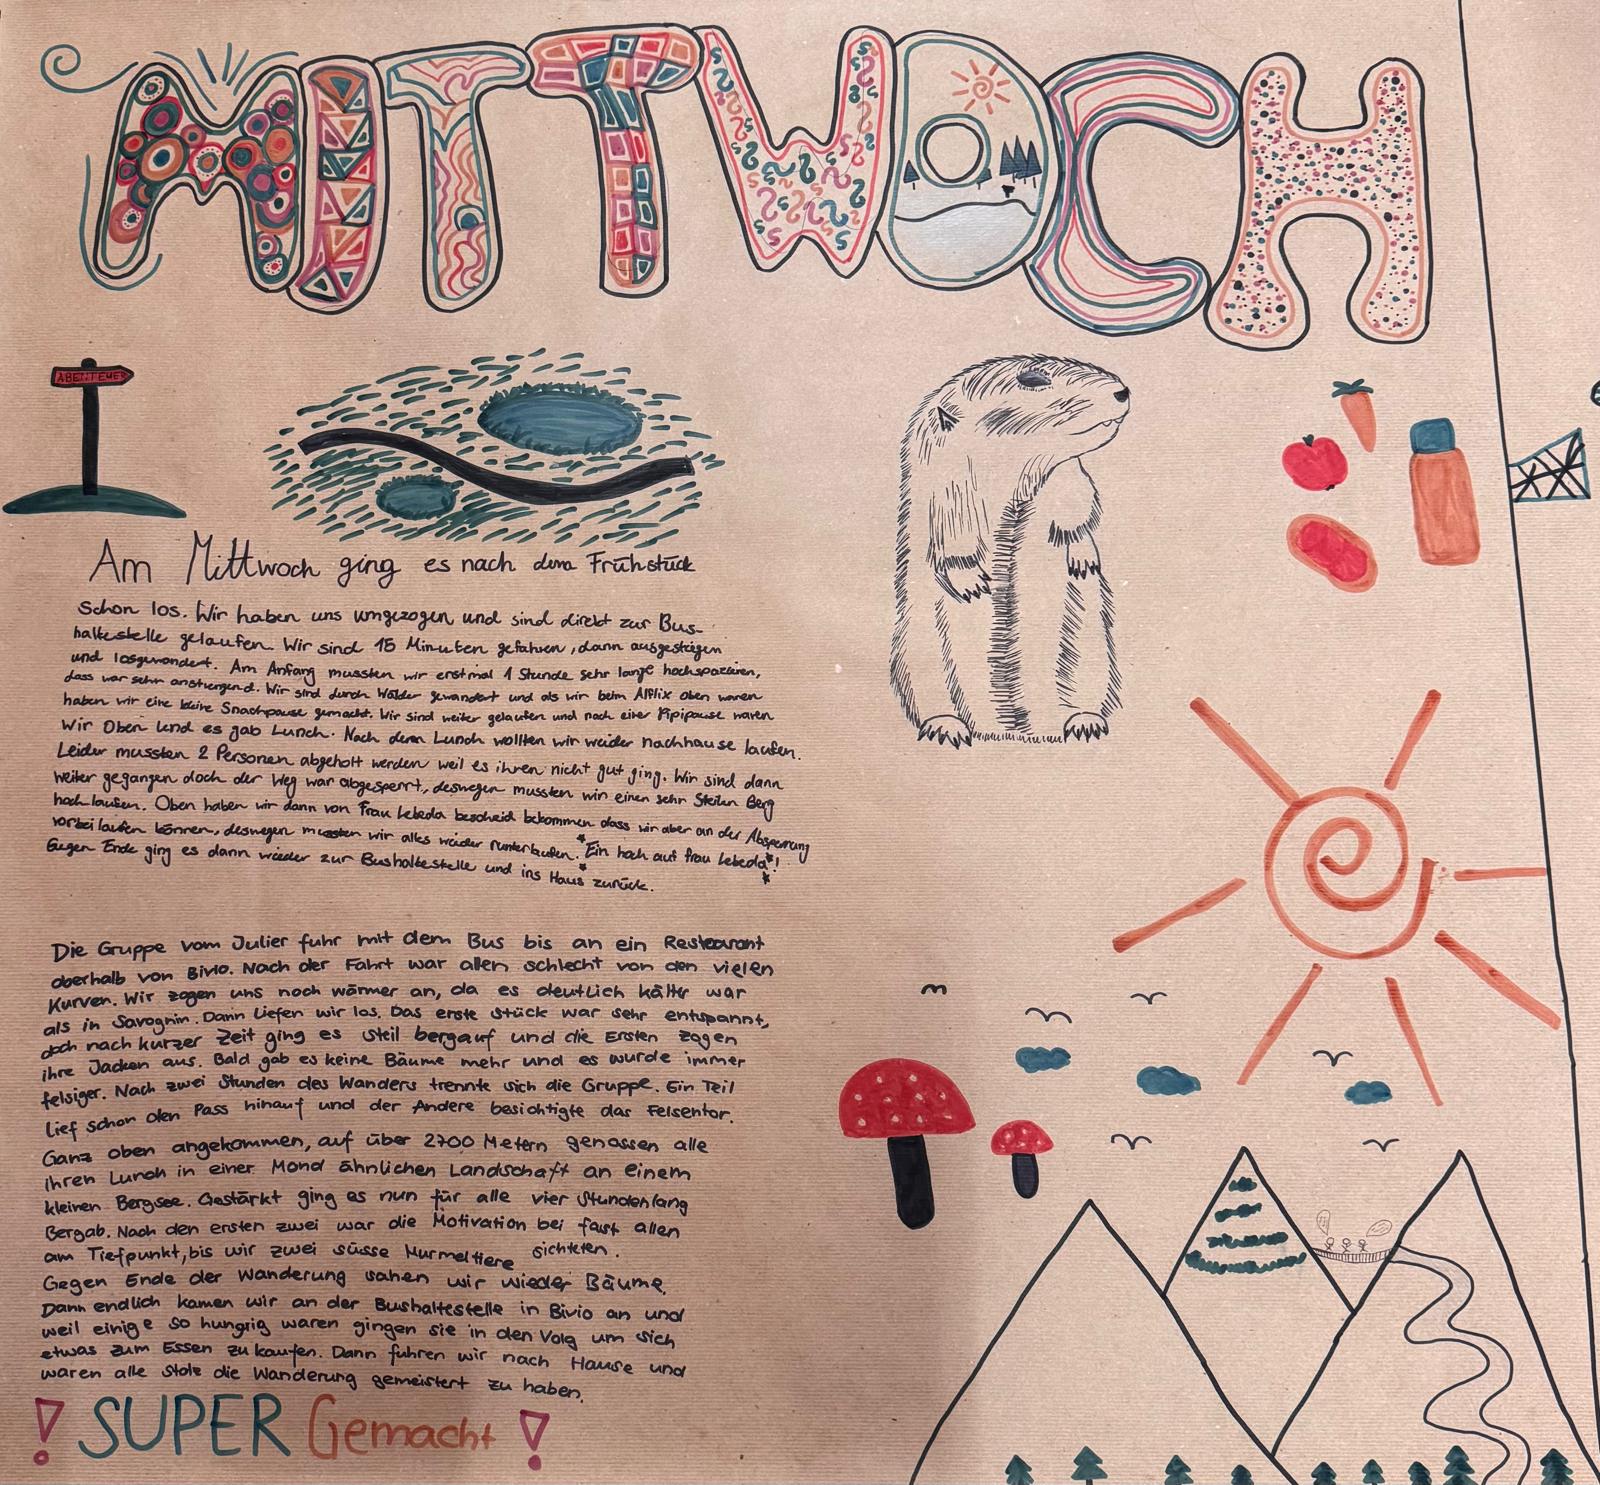 MITTWOCH
ABENTEUER
Am Mittwoch ging es nach dem Frühstück
schon los. Wir haben uns umgezogen und sind direkt zur Bus-
haltestelle gelaufen. Wir sind 15 Minuten gefahren, dann ausgestiegen
und losgewandert. Am Anfang mussten wir erstmal 1 Stunde sehr lange hochspazieren,
dass war sehr anstrengend. Wir sind durch Wälder gewandert und als wir beim Alpflix oben waren
haben wir eine kleine Snackpause gemacht. Wir sind weiter gelaufen und nach einer Pipipause waren
Wir Oben und es gab Lunch. Nach dem Lunch wollten wir wieder nachhause laufen.
Leider mussten 2 Personen abgeholt werden weil es ihren nicht gut ging. Wir sind dann
weiter gegangen doch der Weg war abgesperrt, deswegen mussten wir einen sehr Steilen Berg
hoch laufen. Oben haben wir dann von Frau Lebeda bescheid bekommen dass wir aber an der Absperrung
vorbei laufen können, deswegen mussten wir alles wieder runterlaufen. *Ein hoch auf frau Lebeda*!
Gegen Ende ging es dann wieder zur Bushaltestelle und ins Haus zurück.
Die Gruppe vom Julier fuhr mit dem Bus bis an ein Restaurant
oberhalb von Bivio. Nach der Fahrt war allen schlecht von den vielen
Kurven. Wir zogen uns noch wärmer an, da es deutlich kälter war
als in Savognin. Dann Liefen wir los. Das erste stück war sehr entspannt,
doch nach kurzer Zeit ging es steil bergauf und die Ersten zogen
ihre Jacken aus. Bald gab es keine Bäume mehr und es wurde immer
felsiger. Nach zwei Stunden des Wanders trennte sich die Gruppe. Ein Teil
lief schon den Pass hinauf und der Andere besichtigte das Felsentor.
Ganz oben angekommen, auf über 2700 Metern genossen alle
ihren Lunch in einer Mond ähnlichen Landschaft an einem
kleinen Bergsee. Gestärkt ging es nun für alle vier Stundenlang
Bergab. Nach den ersten zwei war die Motivation bei fast allen
am Tiefpunkt, bis wir zwei süsse Murmeltiere sichteten.
Gegen Ende der Wanderung sahen wir wieder Bäume.
Dann endlich kamen wir an der Bushaltestelle in Bivio an und
weil einige so hungrig waren gingen sie in den Volg um sich
etwas zum Essen zu kaufen. Dann fuhren wir nach Hause und
waren alle Stolz die Wanderung gemeistert zu haben.
! SUPER Gemacht !